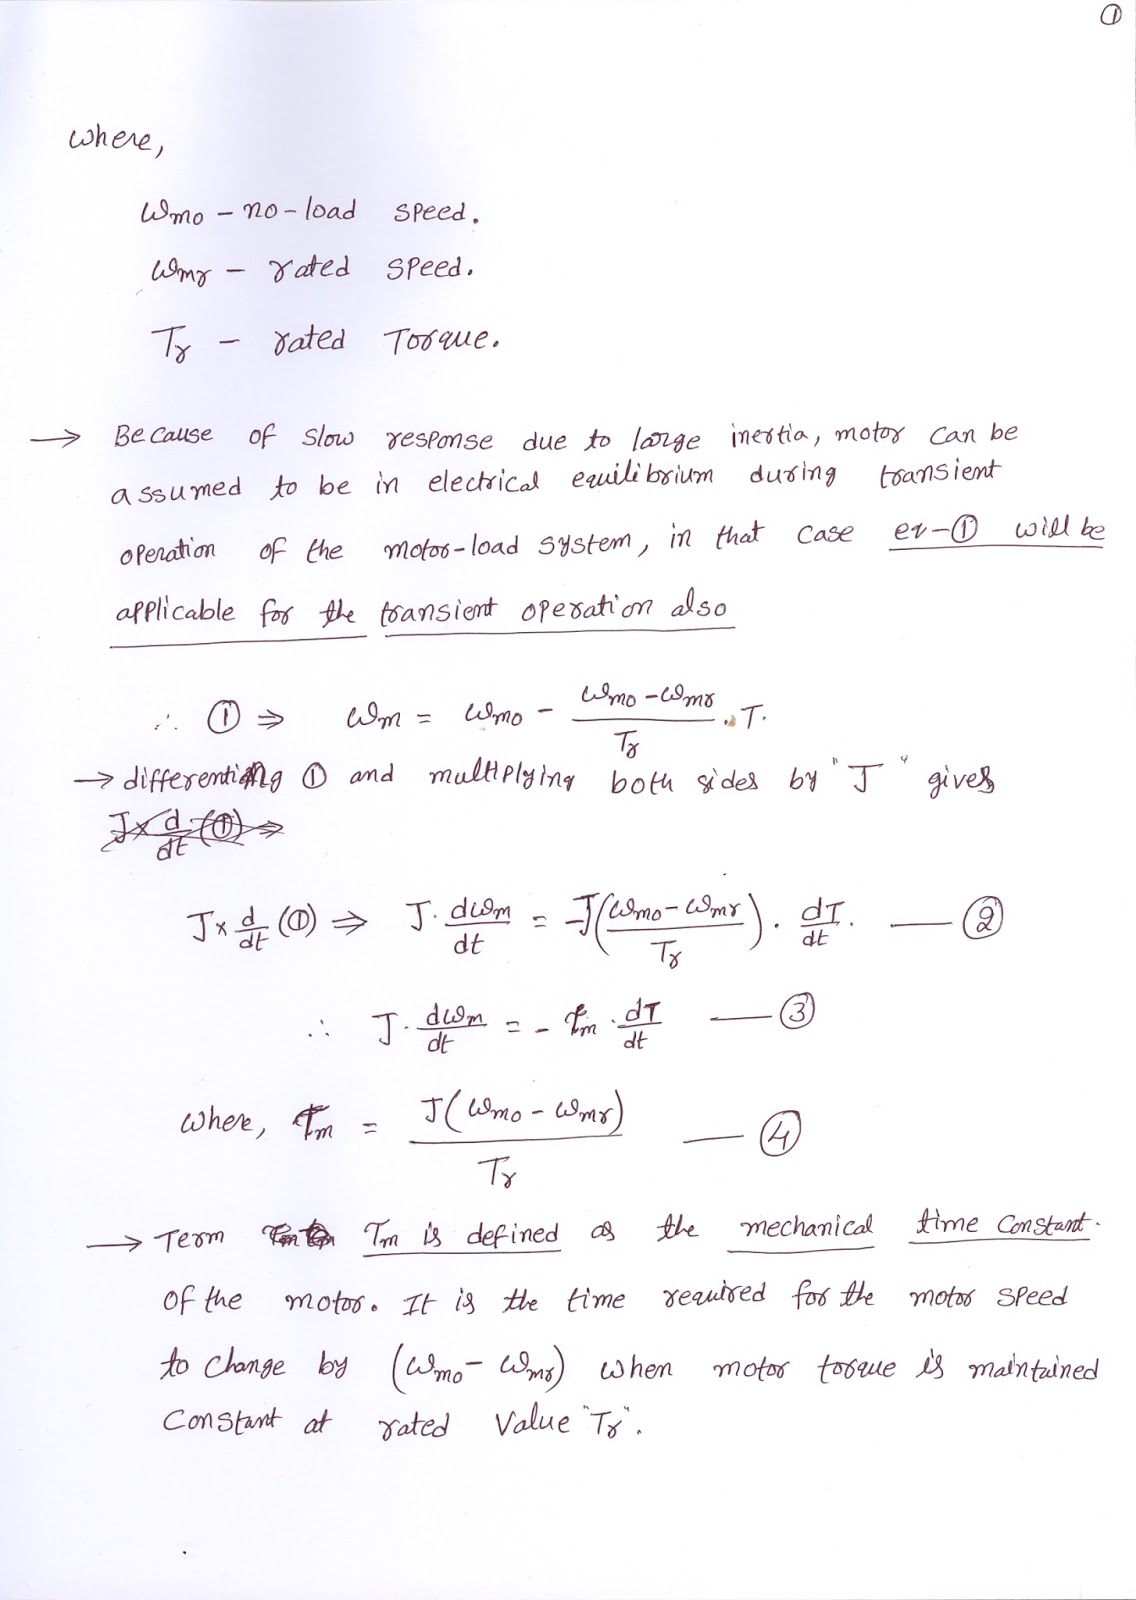 ①
where,
ωmo - no-load speed.
ωmr - rated speed.
Tr - rated Torque.
→ Because of slow response due to large inertia, motor can be
assumed to be in electrical equilibrium during transient
operation of the motor-load system, in that case eq-① will be
applicable for the transient operation also
∴ ① ⇒ ωm = ωmo - (ωmo - ωmr)/Tr . T.
→ differenting ① and multiplying both sides by "J" gives
J× d/dt (①) ⇒
J× d/dt (①) ⇒ J. dωm/dt = -J((ωmo - ωmr)/Tr) . dT/dt. — ②
∴ J. dωm/dt = - τm . dT/dt — ③
where, τm = J(ωmo - ωmr)/Tr — ④
→ Term τm is defined as the mechanical time constant.
of the motor. It is the time required for the motor speed
to change by (ωmo - ωmr) when motor torque is maintained
constant at rated value "Tr".